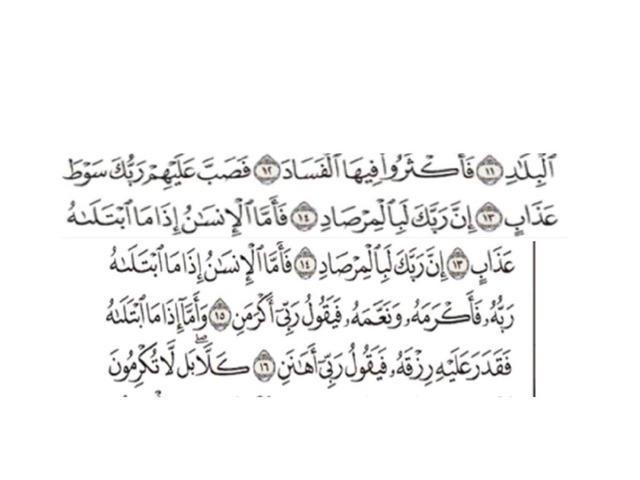 ٱلْبِلَٰدِ ١١ فَأَكْثَرُوا۟ فِيهَا ٱلْفَسَادَ ١٢ فَصَبَّ عَلَيْهِمْ رَبُّكَ سَوْطَ
عَذَابٍ ١٣ إِنَّ رَبَّكَ لَبِٱلْمِرْصَادِ ١٤ فَأَمَّا ٱلْإِنسَٰنُ إِذَا مَا ٱبْتَلَىٰهُ
عَذَابٍ ١٣ إِنَّ رَبَّكَ لَبِٱلْمِرْصَادِ ١٤ فَأَمَّا ٱلْإِنسَٰنُ إِذَا مَا ٱبْتَلَىٰهُ
رَبُّهُۥ فَأَكْرَمَهُۥ وَنَعَّمَهُۥ فَيَقُولُ رَبِّىٓ أَكْرَمَنِ ١٥ وَأَمَّآ إِذَا مَا ٱبْتَلَىٰهُ
فَقَدَرَ عَلَيْهِ رِزْقَهُۥ فَيَقُولُ رَبِّىٓ أَهَٰنَنِ ١٦ كَلَّا ۖ بَل لَّا تُكْرِمُونَ